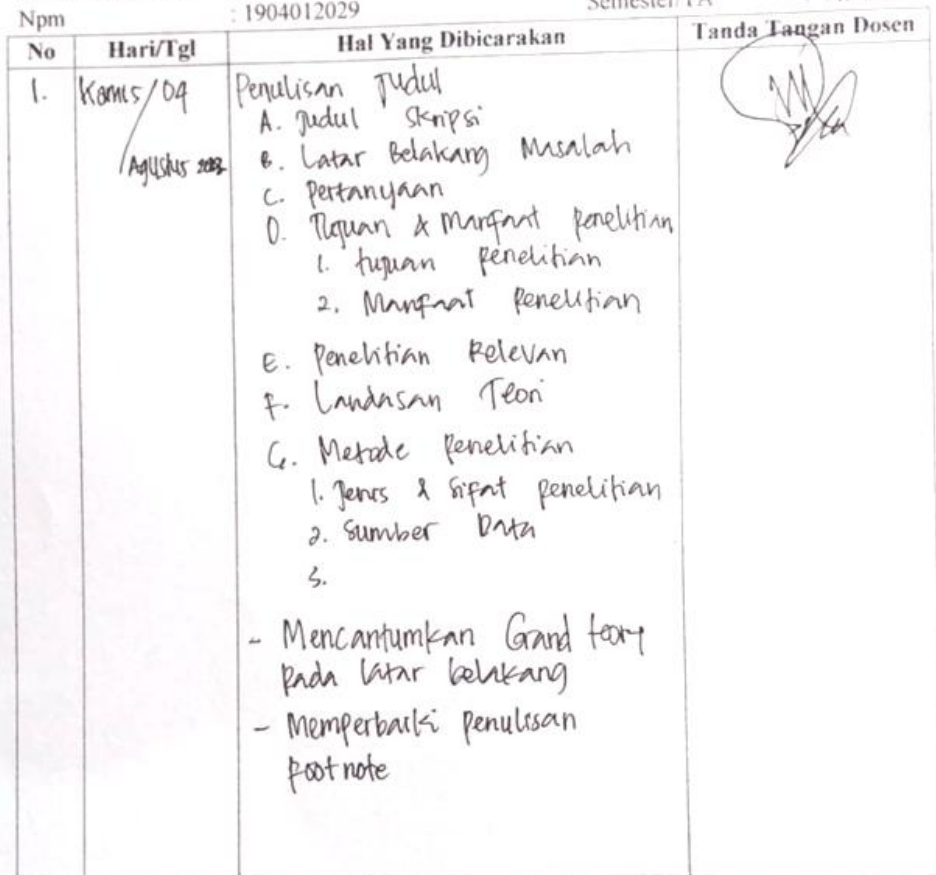 Npm : 1904012029 Semester/TA
No Hari/Tgl Hal Yang Dibicarakan Tanda Tangan Dosen
1. Kamis/04 Penulisan Judul
A. Judul Skripsi
Agustus 2023 B. Latar Belakang Masalah
C. Pertanyaan
D. Tujuan & Manfaat penelitian
1. tujuan penelitian
2. Manfaat Penelitian
E. Penelitian Relevan
F. Landasan Teori
G. Metode Penelitian
1. Jenis & Sifat penelitian
2. Sumber Data
3.
- Mencantumkan Grand teory
pada latar belakang
- Memperbaiki penulisan
footnote